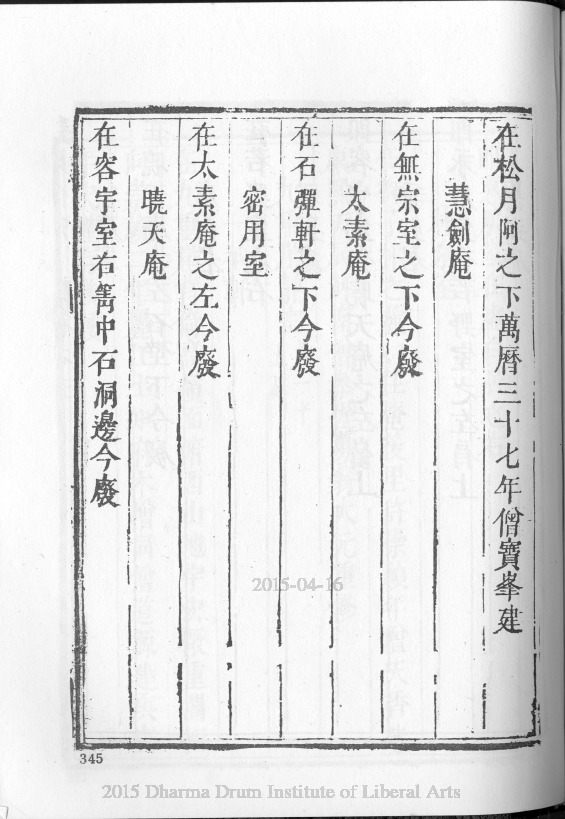 在松月阿之下萬曆三十七年僧寶峯建
慧劍庵
在無宗室之下今廢
太素庵
在石彈軒之下今廢
密用室
在太素庵之左今廢
曉天庵
在容宇室右篝中石洞邊今廢
2015-04-16
345
2015 Dharma Drum Institute of Liberal Arts